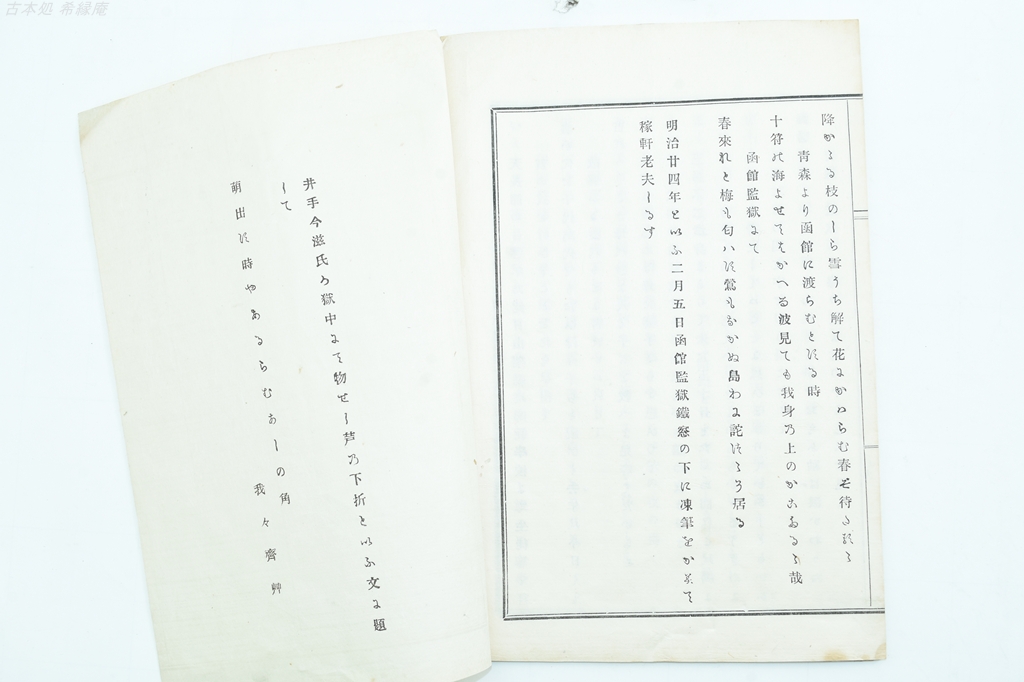 古本処 希縁庵
降かゝる枝のしら雪うち解て花にかはらむ春を待
青森より函館に渡らむとする時
十符の海よせてはかへる波見ても我身乃上のかこ哉
函館監獄にて
春來れと梅も匂はす鶯もなかぬ島わに詫すらう居る
明治廿四年といふ二月五日函館監獄鐵窓の下に凍筆をかみて
稼軒老夫しるす
井手今滋氏か獄中にて物せし芦乃下折といふ文に題
して
萌出す時やあるらむあしの角
我々齊艸